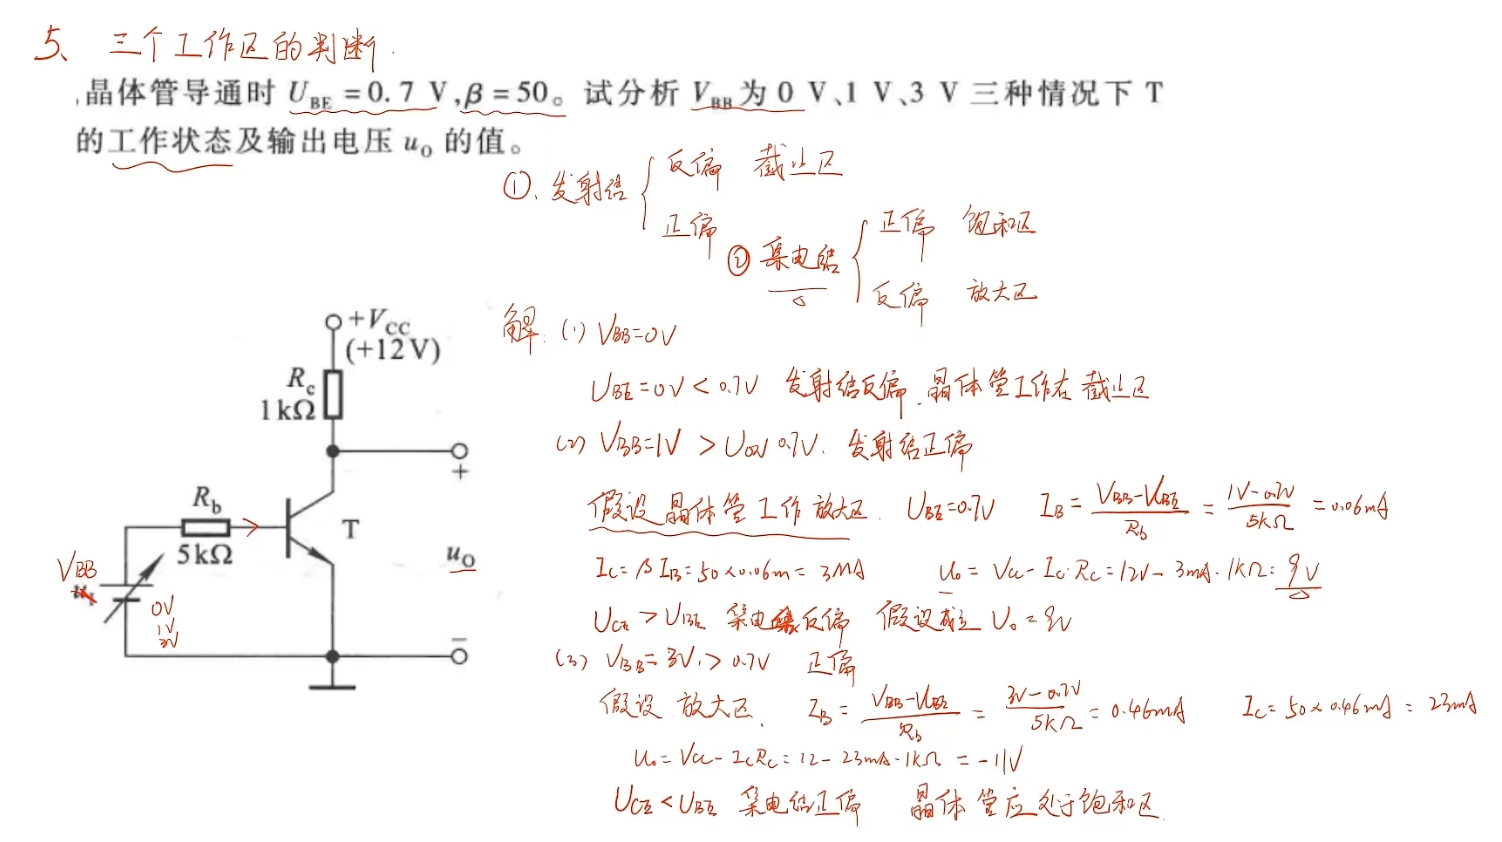 5、三个工作区的判断.
晶体管导通时 U_BE = 0.7 V,β = 50。试分析 V_BB 为 0 V、1 V、3 V 三种情况下 T
的工作状态及输出电压 u_O 的值。
①. 发射结
反偏 截止区
正偏
② 集电结
正偏 饱和区
反偏 放大区
+V_CC
(+12 V)
R_c
1 kΩ
+
R_b
5 kΩ
T
u_O
V_BB
u_I
0V
1V
3V
−
解. (1) V_BB=0V
U_BE=0V < 0.7V 发射结反偏. 晶体管工作在 截止区
(2) V_BB=1V > U_on 0.7V. 发射结正偏
假设 晶体管工作放大区. U_BE=0.7V I_B = (V_BB-U_BE)/R_b = (1V-0.7V)/5kΩ = 0.06mA
I_C = βI_B = 50×0.06m = 3mA u_o = V_CC - I_C·R_C = 12V - 3mA·1kΩ = 9V
U_CE > U_BE 集电结反偏 假设成立 U_o = 9V
(3) V_BB = 3V > 0.7V 正偏
假设 放大区. I_B = (V_BB-U_BE)/R_b = (3V-0.7V)/5kΩ = 0.46mA I_C = 50×0.46mA = 23mA
u_o = V_CC - I_C R_C = 12 - 23mA·1kΩ = -11V
U_CE < U_BE 集电结正偏 晶体管应处于饱和区.